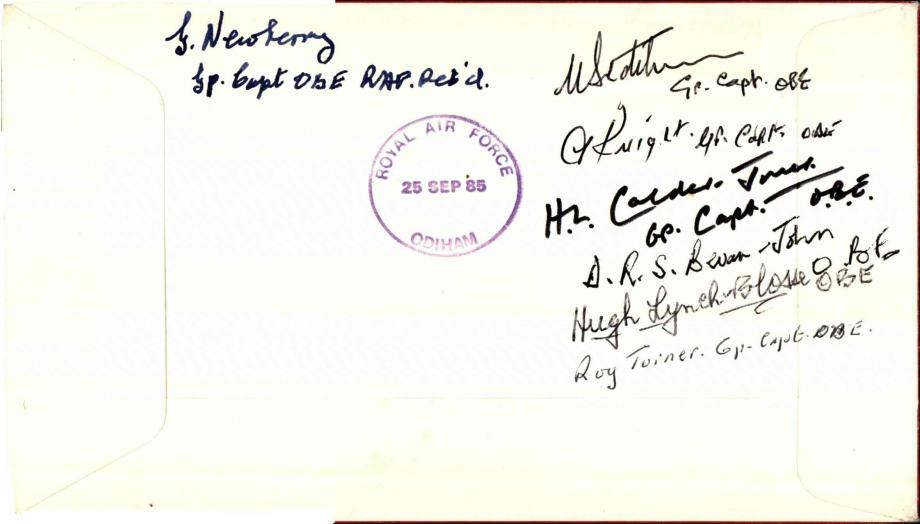 J. Newberry
Gp. Capt OBE RAF. Ret'd.
ROYAL AIR FORCE
25 SEP 85
ODIHAM
Gp. Capt. OBE
Knight. Gp. Capt. OBE
H.L. Calder-Jones.
Gp. Capt. O.B.E.
D. R. S. Bevan-John
O.B.E
Hugh Lynch-Blosse OBE
Roy Turner. Gp. Capt. OBE.